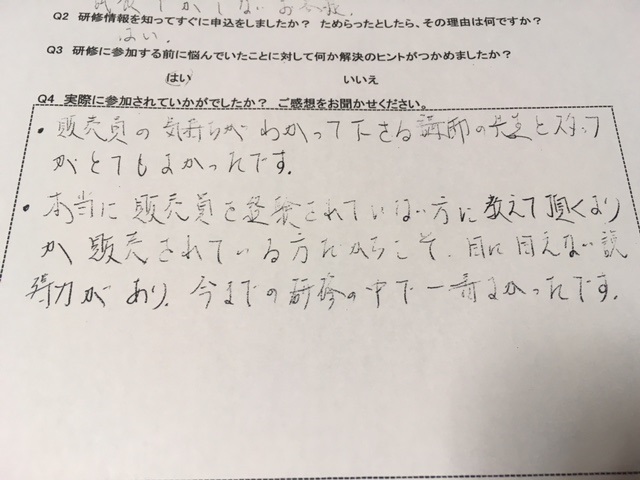 Q2 研修情報を知ってすぐに申込をしましたか？ ためらったとしたら、その理由は何ですか？
はい。
Q3 研修に参加する前に悩んでいたことに対して何か解決のヒントがつかめましたか？
はい いいえ
Q4 実際に参加されていかがでしたか？ ご感想をお聞かせください。
・販売員の気持ちがわかって下さる講師の先生とスタッフ
がとてもよかったです。
・本当に販売員を経験されていない方に教えて頂くより
か販売されている方だからこそ、目に見えない説
得力があり、今までの研修の中で一番よかったです。